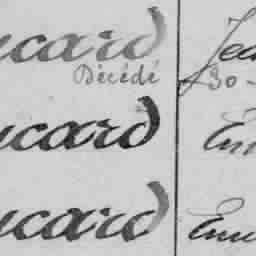 ucard Jea
Décédé 30-
ucard Em
ucard Emm